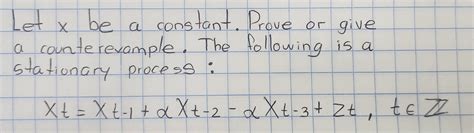 Let x be a constant. Prove or give
a counterexample. The following is a
stationary process :
Xt = Xt-1 + αXt-2 - αXt-3 + Zt , t ∈ ℤ